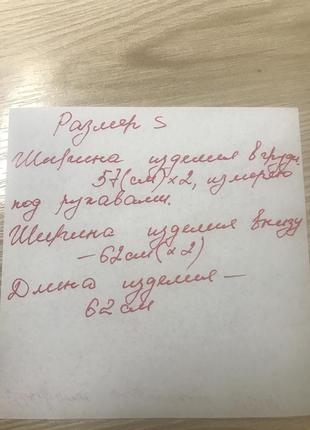 Размер S
Ширина изделия в груди
57(см)х2, измеряю
под рукавами.
Ширина изделия внизу
– 62см(х2)
Длина изделия –
62см